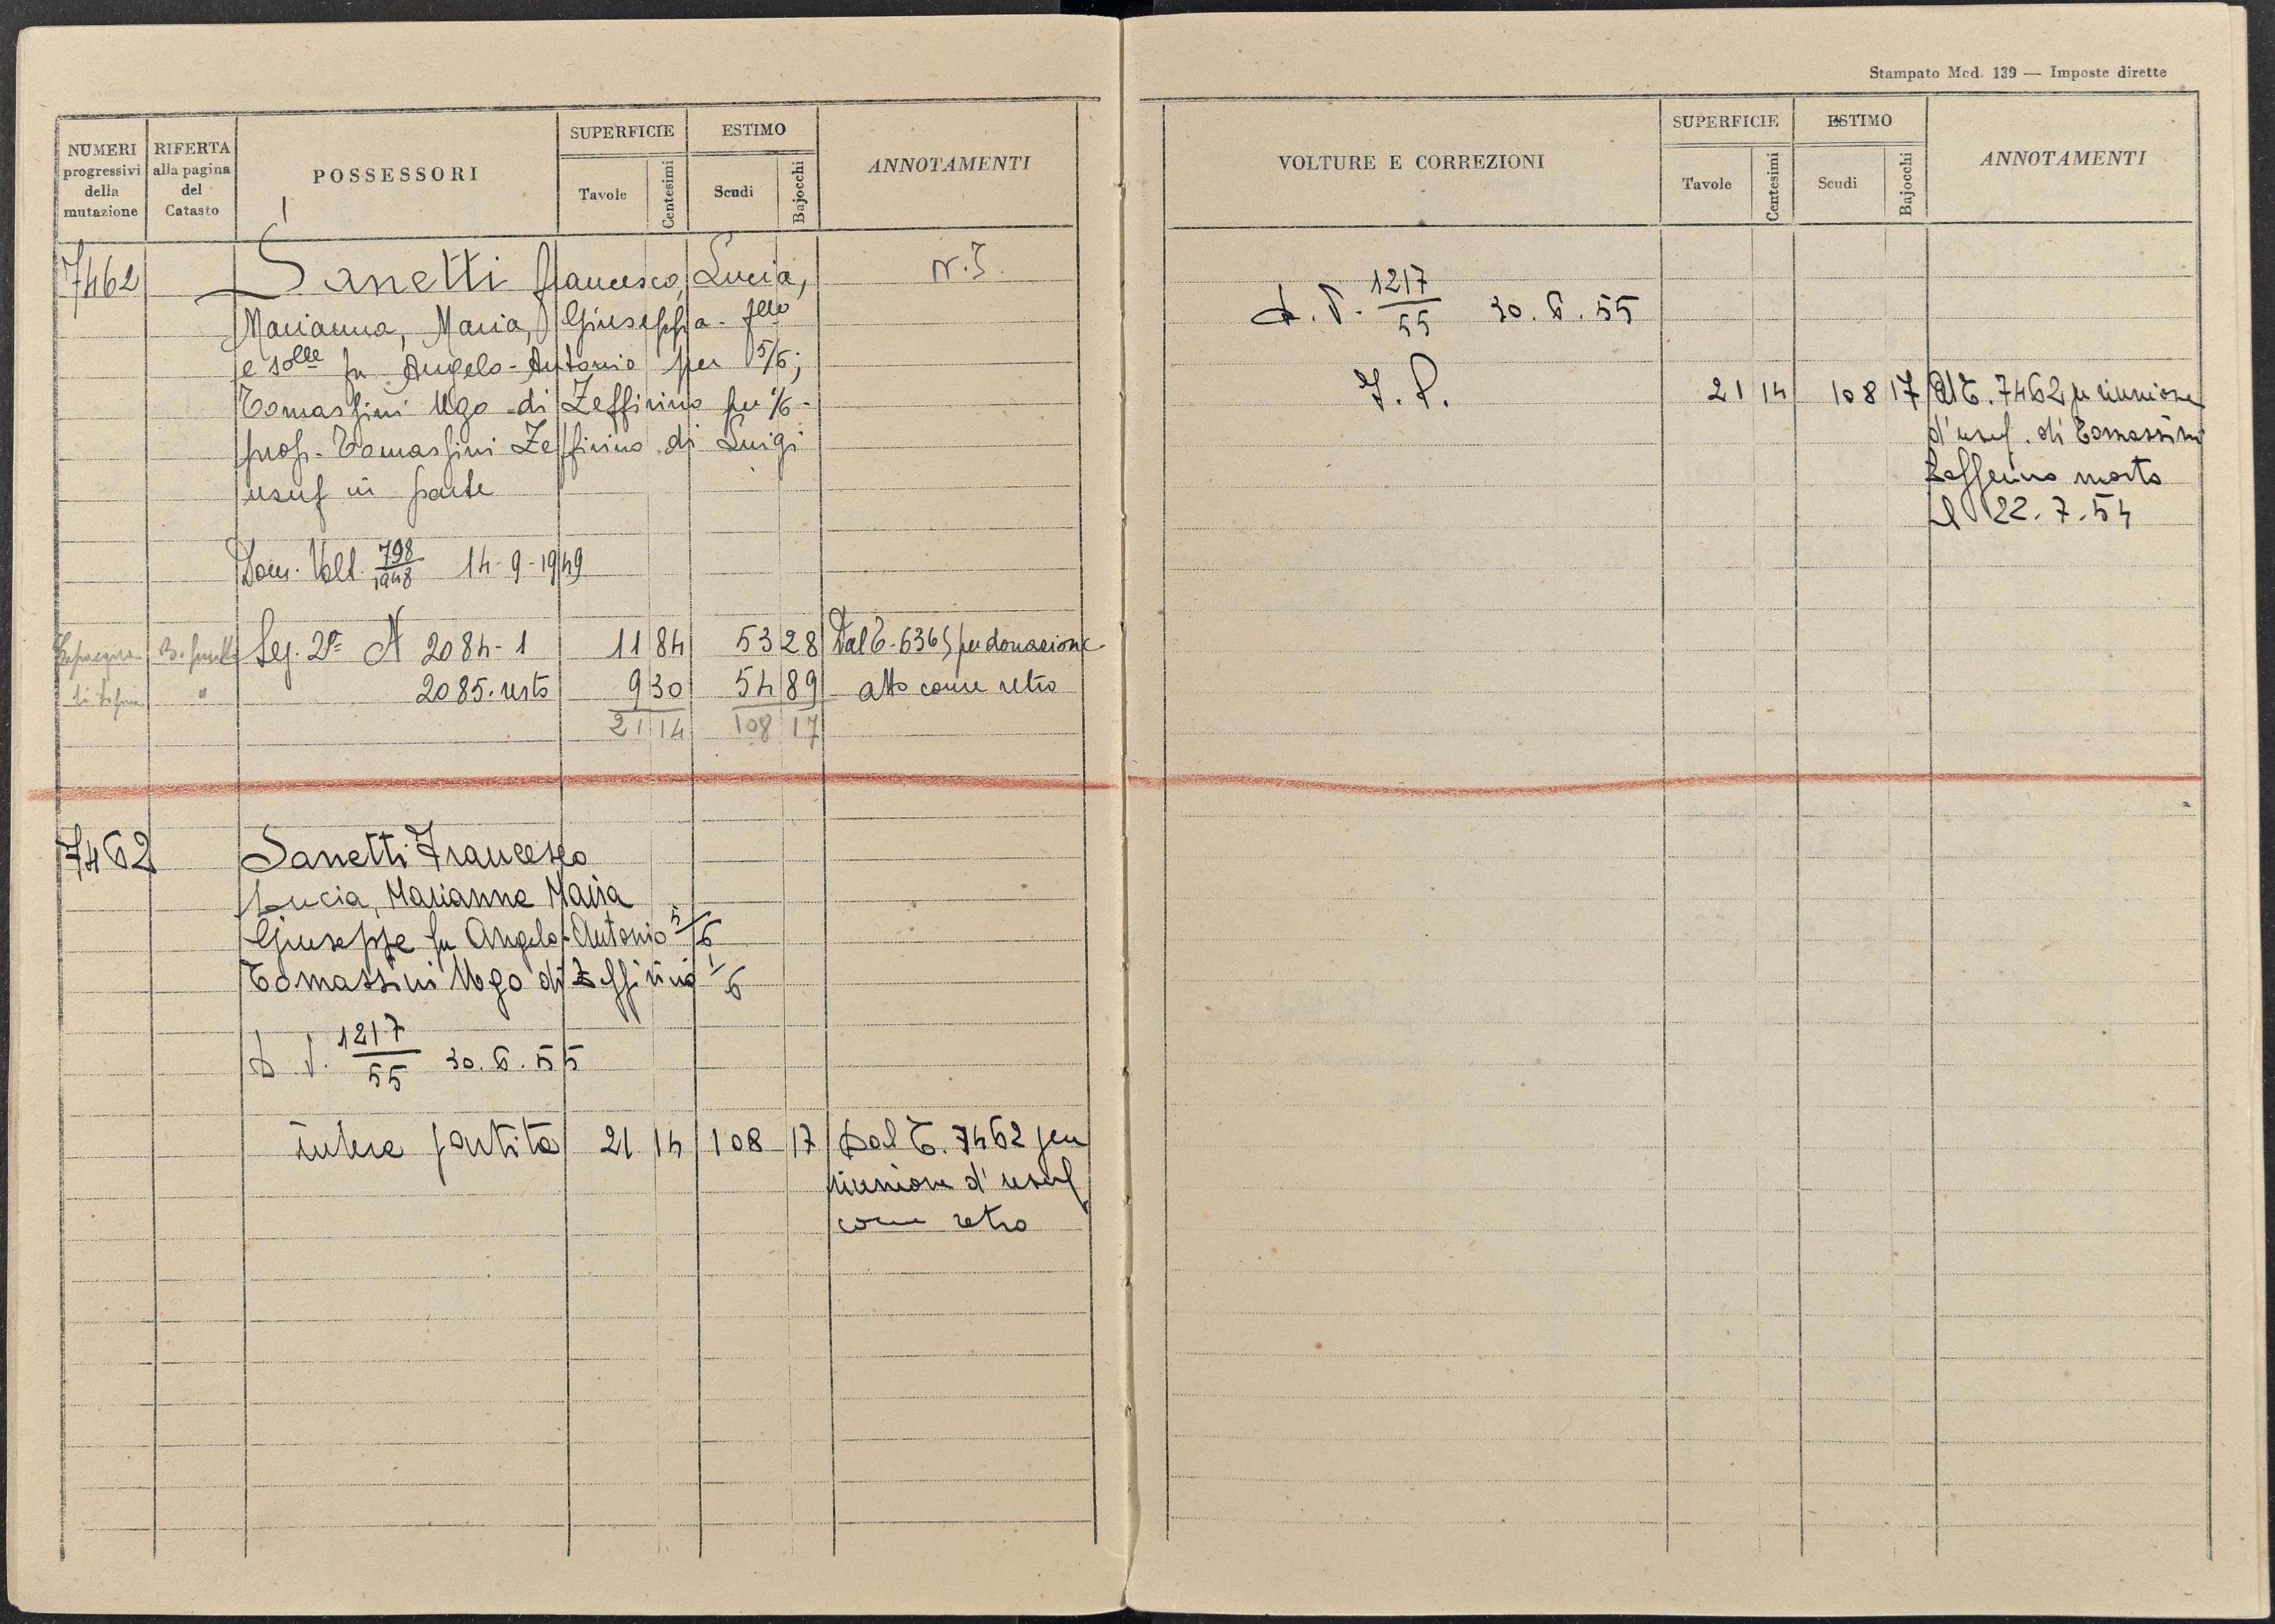 NUMERI progressivi della mutazione
RIFERTA alla pagina del Catasto
POSSESSORI
SUPERFICIE
Tavole
Centesimi
ESTIMO
Scudi
Bajocchi
ANNOTAMENTI
7462 Sanetti Francesco, Lucia, N. I.
Marianna, Maria, Giuseppa - flli
e slle fu Angelo-Antonio per 5/6;
Tomassini Ugo di Zeffirino per 1/6 -
prop. Tomassini Zeffirino di Luigi
usuf in parte
Dom. Volt. 798/1948 14-9-1949
Sez. 2ª N 2084-1 11 84 53 28 Dal T. 6365 per donazione
" 2085. resto 9 30 54 89 atto come retro
21 14 108 17
7462 Sanetti Francesco
Lucia, Marianna Maria
Giuseppe fu Angelo-Antonio 5/6
Tomassini Ugo di Zeffirino 1/6
D. V. 1217/55 30.6.55
intera partita 21 14 108 17 Dal T. 7462 per
riunione d'usuf
come retro
Stampato Mod. 139 — Imposte dirette
VOLTURE E CORREZIONI
SUPERFICIE
Tavole
Centesimi
ESTIMO
Scudi
Bajocchi
ANNOTAMENTI
D. V. 1217/55 30.6.55
I. P. 21 14 108 17 Al T. 7462 p riunione
d'usuf. di Tomassini
Zefferino morto
il 22.7.54